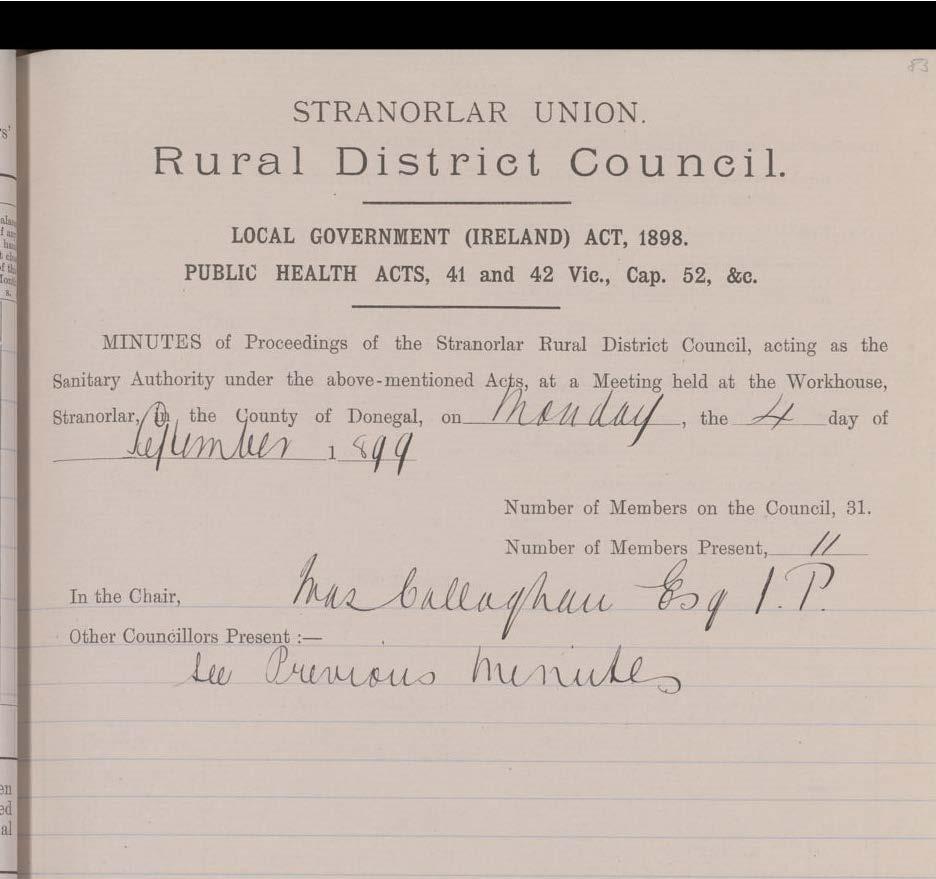 83
STRANORLAR UNION.
Rural District Council.
LOCAL GOVERNMENT (IRELAND) ACT, 1898.
PUBLIC HEALTH ACTS, 41 and 42 Vic., Cap. 52, &c.
MINUTES of Proceedings of the Stranorlar Rural District Council, acting as the
Sanitary Authority under the above-mentioned Acts, at a Meeting held at the Workhouse,
Stranorlar, in the County of Donegal, on Monday, the 4 day of
September 1899
Number of Members on the Council, 31.
Number of Members Present, 11
In the Chair, Callaghan Esq J.P.
Other Councillors Present :—
See Previous Minutes